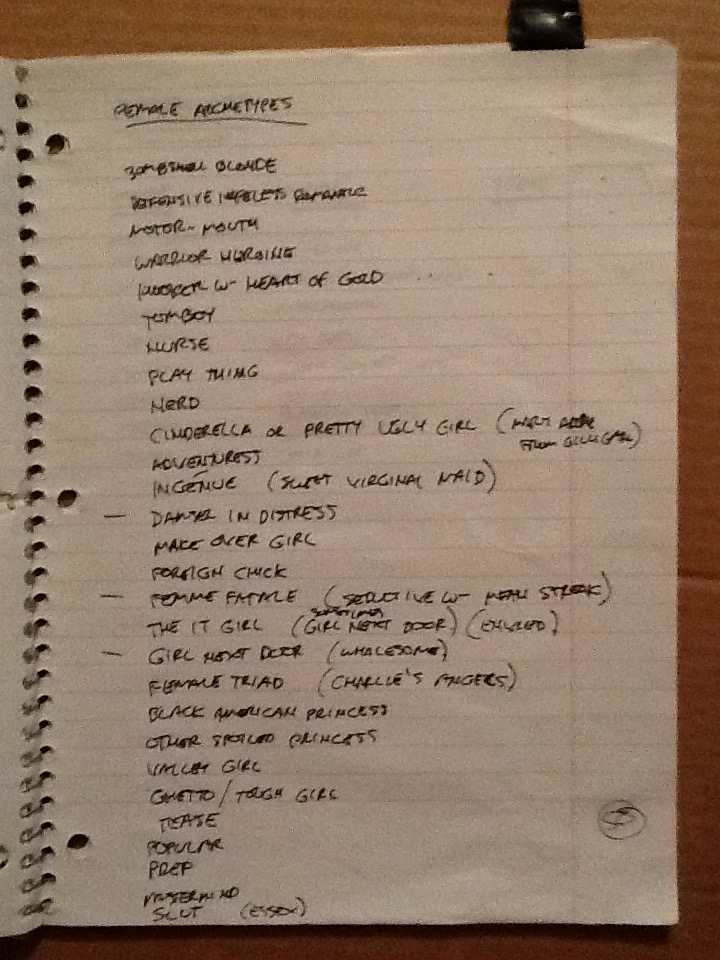 FEMALE ARCHETYPES
BOMBSHELL BLONDE
DEFENSIVE HOPELESS ROMANTIC
MOTOR-MOUTH
WARRIOR HEROINE
HOOKER W- HEART OF GOLD
TOMBOY
NURSE
PLAY THING
NERD
CINDERELLA OR PRETTY UGLY GIRL (MARY ANN
FROM GILLIGAN)
ADVENTURESS
INGÉNUE (SWEET VIRGINAL MAID)
— DAMSEL IN DISTRESS
MAKE OVER GIRL
FOREIGN CHICK
— FEMME FATALE (SEDUCTIVE W- MEAN STREAK)
SOMETIMES
THE IT GIRL (GIRL NEXT DOOR)
— GIRL NEXT DOOR (WHOLESOME)
FEMALE TRIAD (CHARLIE'S ANGELS)
BLACK AMERICAN PRINCESS
OTHER SPOILED PRINCESS
VALLEY GIRL
GHETTO/TOUGH GIRL
TEASE
POPULAR
PREP
MASTERMIND
SLUT (ESSEX)